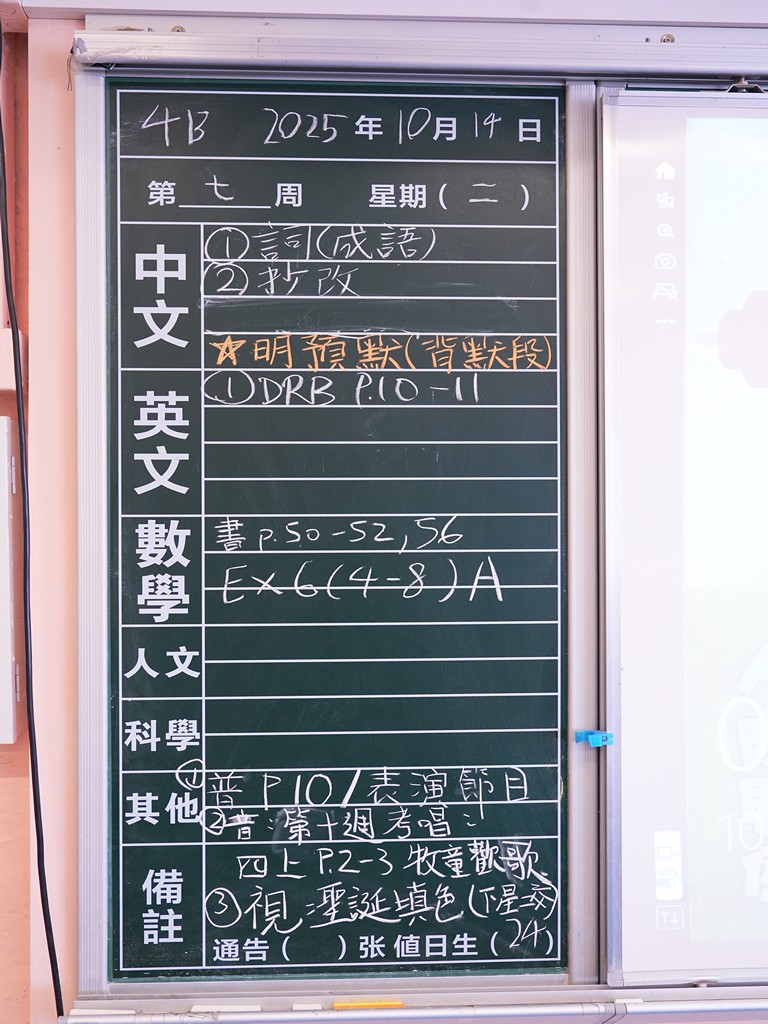 4B 2025年10月14日
第七周 星期(二)
中文
①詞(成語)
②抄改
☆明預默(背默段)
英文
①DRB P.10-11
數學
書 p.50-52,56
Ex 6(4-8)A
人文
科學
其他
①普 P10/表演節目
②音:第十週考唱:
四上 P.2-3 牧童歡歌
備註
③視:聖誕填色(下星交)
通告( )张 值日生(24)